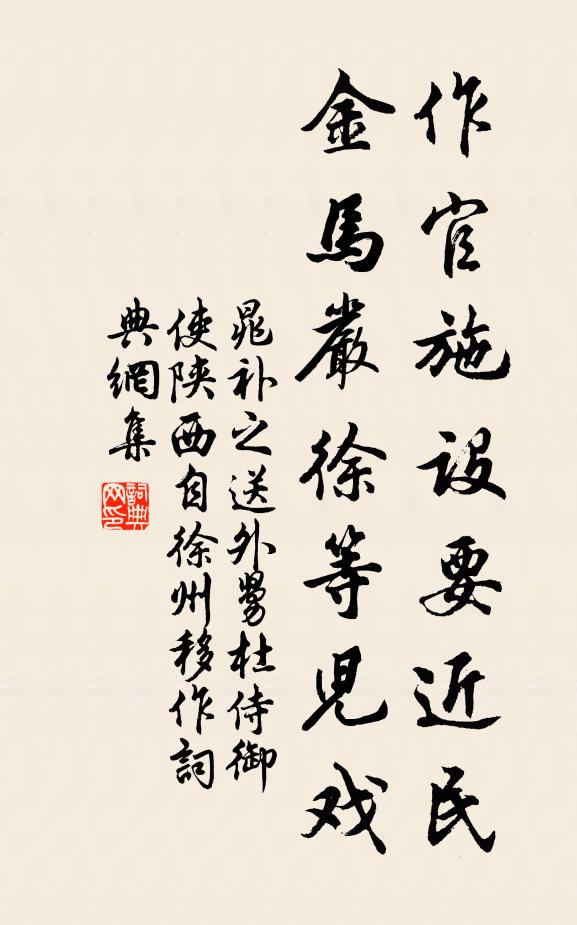 作官施設要近民
金馬嚴徐等児戏
晁补之送外舅杜侍御
使陕西自徐州移作詞
典網集
詞典
网印